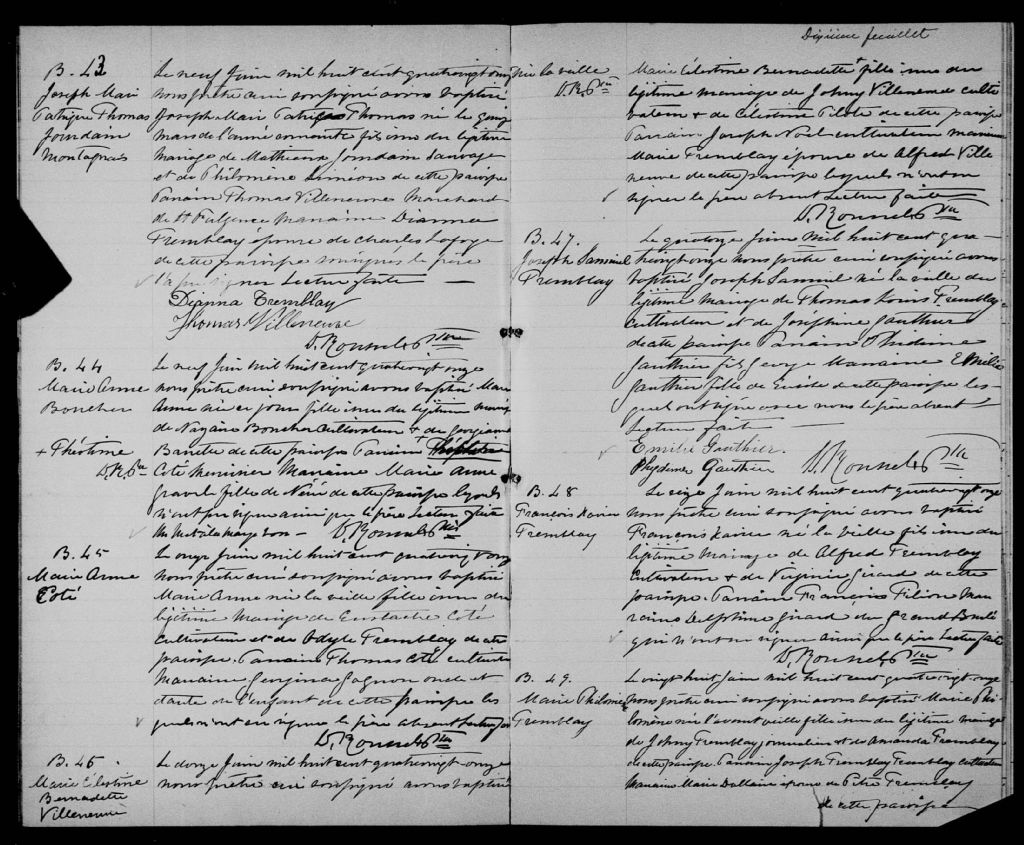 B. 43
Joseph Marie
Patrique Thomas
Jourdain
Montagnais
Le neuf Juin mil huit cent quatrevingt onze
nous prêtre curé soussigné avons baptisé
Joseph Marie Patrique Thomas né le quinze
mars de l'année courante fils issu du légitime
mariage de Mathieu Jourdain Sauvage
et de Philomène Siméon de cette paroisse
Parrain Thomas Villeneuve Marchand
de St Fulgence Marraine Dianna
Tremblay épouse de Charles
de cette paroisse soussignés le père
n'a pu signer Lecture faite
Dianna Tremblay
Thomas Villeneuve
D. Roussel Ptre
B. 44
Marie Anne
Boucher
+ Théotime
D.R. Ptre
Le neuf Juin mil huit cent quatrevingt onze
nous prêtre curé soussigné avons baptisé Marie
Anne née ce jour fille issue du légitime mariage
de Nazaire Boucher Cultivateur & de Georgianna
de cette paroisse Parrain
Coté Menuisier Marraine Marie Anne
Gravel fille de Néré de cette paroisse lesquels
n'ont pu signer ainsi que le père Lecture faite
Un mot à la marge bon — D. Roussel Ptre
B. 45
Marie Anne
Coté
Le onze Juin mil huit cent quatrevingt onze
nous prêtre curé soussigné avons baptisé
Marie Anne née la veille fille issue du
légitime Mariage de Eustache Coté
Cultivateur et de Odyle Tremblay de cette
paroisse. Parrain Thomas Coté cultivateur
Marraine Georgina Gagnon oncle et
tante de l'enfant de cette paroisse les
quels n'ont su signer le père absent Lecture faite
D. Roussel Ptre
B. 46
Marie Célestine
Bernadette
Villeneuve
Le douze Juin mil huit cent quatrevingt onze
nous prêtre curé soussigné avons baptisé
Dixième feuillet
née la veille
D.R. Ptre
Marie Célestine Bernadette + fille issue du
légitime mariage de Johny Villeneuve culti
vateur & de Célestine Pilote de cette paroisse
Parrain Joseph Noel cultivateur marraine
Marie Tremblay épouse de Alfred Ville
neuve de cette paroisse lesquels n'ont su
signer le père absent Lecture faite
D. Roussel Ptre
B. 47.
Joseph Samuel
Tremblay
Le quatorze Juin mil huit cent qua
trevingt onze nous prêtre curé soussigné avons
baptisé Joseph Samuel né la veille du
légitime mariage de Thomas Louis Tremblay
cultivateur et de Joséphine Gauthier
de cette paroisse Parrain Phydime
Gauthier fils Marraine Emilie
Gauthier fille de de cette paroisse les
quels ont signé avec nous le père absent
Lecture faite —
Emilie Gauthier.
Phydime Gauthier
D. Roussel Ptre
B. 48
François Xavier
Tremblay
Le seize Juin mil huit cent quatrevingt onze
nous prêtre curé soussigné avons baptisé
François Xavier né la veille fils issu du
légitime Mariage de Alfred Tremblay
Cultivateur & de Virginie Girard de cette
paroisse. Parrain François Filion Mar
raine Delphine Girard du Grand Brulé
qui n'ont su signer ainsi que le père Lecture faite
D. Roussel Ptre
B. 49.
Marie Philomène
Tremblay
Le vingt huit Juin mil huit cent quatrevingt onze
nous prêtre curé soussigné avons baptisé Marie Phi
lomène née l'avant veille fille issue du légitime mariage
de Johny Tremblay journalier et de Amanda Tremblay
de cette paroisse. Parrain Joseph Tremblay Tremblay cultivateur
Marraine Marie Dallaire épouse de Pitre Tremblay
de cette paroisse